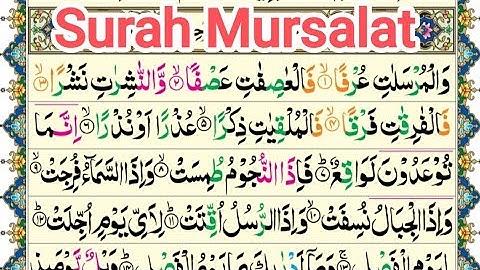 Surah Mursalat
وَالْمُرْسَلٰتِ عُرْفًا ۙ﴿۱﴾ فَالْعٰصِفٰتِ عَصْفًا ۙ﴿۲﴾ وَّالنّٰشِرٰتِ نَشْرًا ۙ﴿۳﴾
فَالْفٰرِقٰتِ فَرْقًا ۙ﴿۴﴾ فَالْمُلْقِيٰتِ ذِكْرًا ۙ﴿۵﴾ عُذْرًا اَوْ نُذْرًا ۙ﴿۶﴾ اِنَّمَا
تُوْعَدُوْنَ لَوَاقِعٌ ؕ﴿۷﴾ فَاِذَا النُّجُوْمُ طُمِسَتْ ۙ﴿۸﴾ وَاِذَا السَّمَآءُ فُرِجَتْ ۙ﴿۹﴾
وَاِذَا الْجِبَالُ نُسِفَتْ ۙ﴿۱۰﴾ وَاِذَا الرُّسُلُ اُقِّتَتْ ؕ﴿۱۱﴾ لِاَيِّ يَوْمٍ اُجِّلَتْ ؕ﴿۱۲﴾
لِيَوْمِ الْفَصْلِ ۚ﴿۱۳﴾ وَمَاۤ اَدْرٰىكَ مَا يَوْمُ الْفَصْلِ ؕ﴿۱۴﴾ وَيْلٌ يَّوْمَئِذٍ